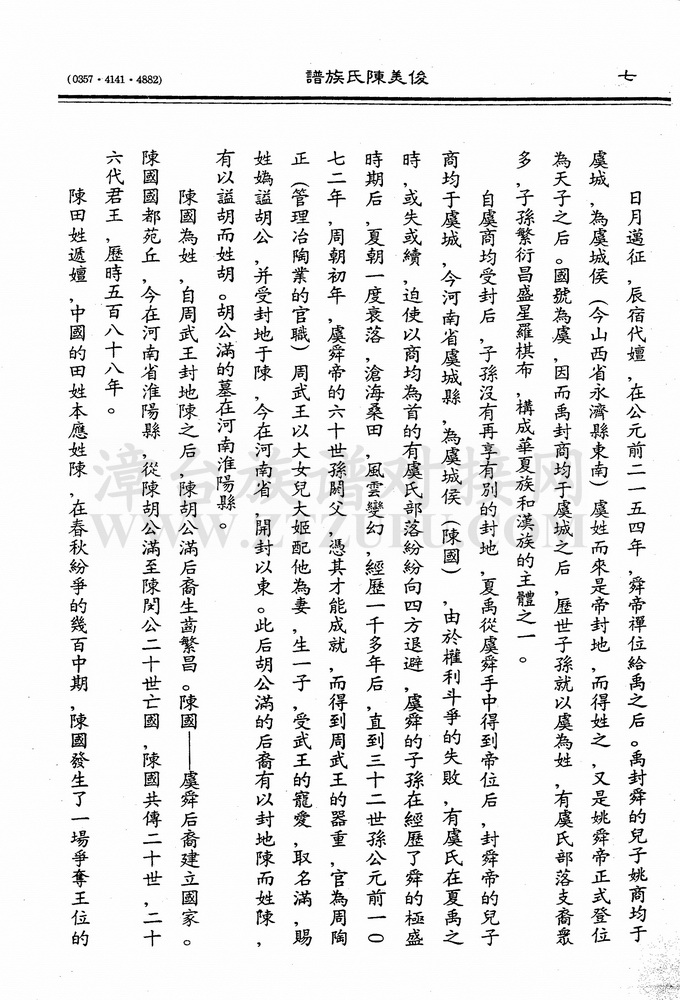 七
俊美陳氏族譜
(0357·4141·4882)
日月邁征，辰宿代嬗，在公元前二一五四年，舜帝禪位給禹之后。禹封舜的兒子姚商均于
虞城，為虞城侯（今山西省永濟縣東南）虞姓而來是帝封地，而得姓之，又是姚舜帝正式登位
為天子之后。國號為虞，因而禹封商均于虞城之后，歷世子孫就以虞為姓，有虞氏部落支裔眾
多，子孫繁衍昌盛星羅棋布，構成華夏族和漢族的主體之一。
自虞商均受封后，子孫沒有再享有別的封地，夏禹從虞舜手中得到帝位后，封舜帝的兒子
商均于虞城，今河南省虞城縣，為虞城侯（陳國），由於權利斗爭的失敗，有虞氏在夏禹之
時，或失或續，迫使以商均為首的有虞氏部落紛紛向四方退避，虞舜的子孫在經歷了舜的極盛
時期后，夏朝一度衰落，滄海桑田，風雲變幻，經歷一千多年后，直到三十二世孫公元前一〇
七二年，周朝初年，虞舜帝的六十世孫閼父，憑其才能成就，而得到周武王的器重，官為周陶
正（管理冶陶業的官職）周武王以大女兒大姬配他為妻，生一子，受武王的寵愛，取名滿，賜
姓媯謚胡公，并受封地于陳，今在河南省，開封以東。此后胡公滿的后裔有以封地陳而姓陳，
有以謚胡而姓胡。胡公滿的墓在河南淮陽縣。
陳國為姓，自周武王封地陳之后，陳胡公滿后裔生齒繁昌。陳國——虞舜后裔建立國家。
陳國國都苑丘，今在河南省淮陽縣，從陳胡公滿至陳閔公二十世亡國，陳國共傳二十世，二十
六代君王，歷時五百八十八年。
陳田姓遞嬗，中國的田姓本應姓陳，在春秋紛爭的幾百中期，陳國發生了一場爭奪王位的
漳台族谱对接网
www.ZTZUPU.COM